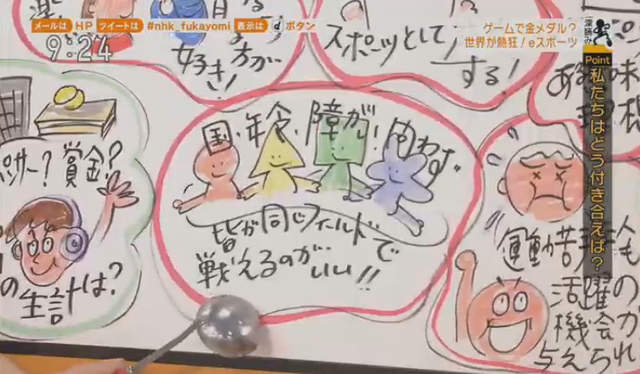 メールは HP ツイートは #nhk_fukayomi 表示は d ボタン
9:24
ゲームで金メダル？
世界が熱狂！eスポーツ
深読み
Point 私たちはどう付き合えば？
方が
好き！
スポーツとして
する！
味
国・年令、障がい問わず
皆が同じフィールドで
戦えるのがいい!!
サー？賞金？
の生計は？
運動苦手な人も
活躍の
機会が
与えられ